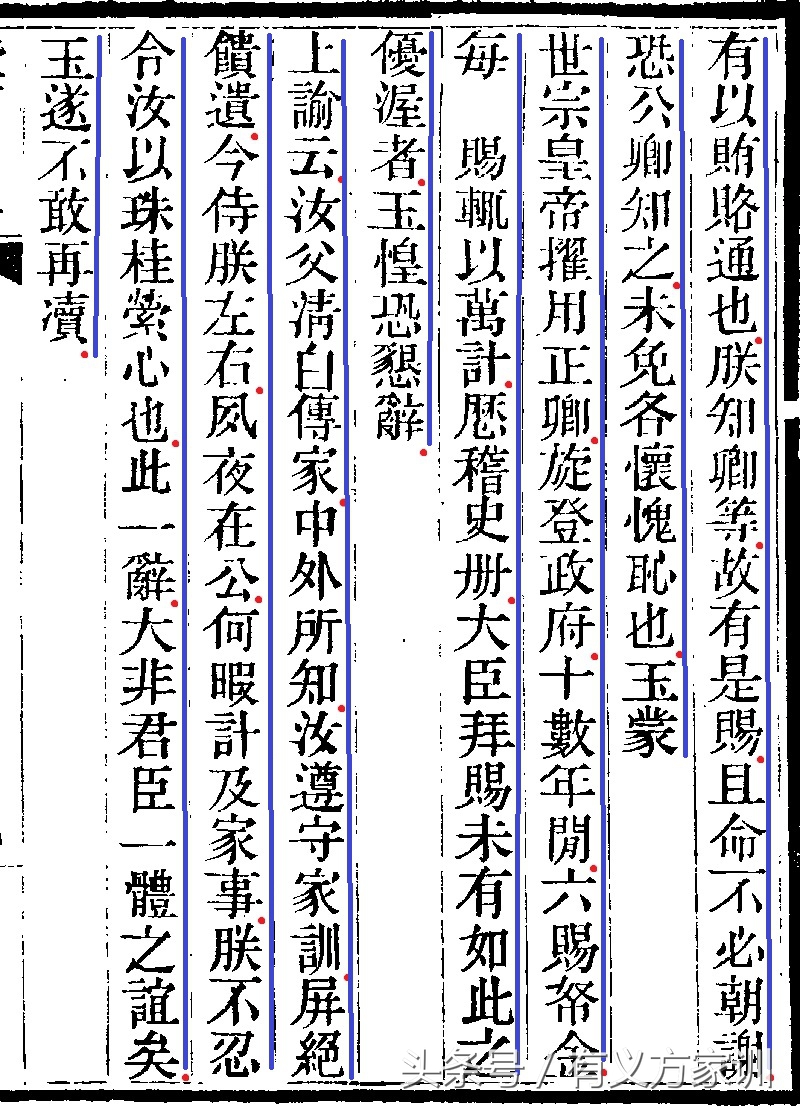 有以賄賂通也朕知卿等故有是賜且命不必朝謝
恐公卿知之未免各懷愧恥也玉蒙
世宗皇帝擢用正卿旋登政府十數年閒六賜帑金
每 賜輒以萬計歷稽史册大臣拜賜未有如此之
優渥者玉惶恐懇辭
上諭云汝父清白傳家中外所知汝遵守家訓屏絕
饋遺今侍朕左右夙夜在公何暇計及家事朕不忍
令汝以珠桂縈心也此一辭大非君臣一體之誼矣
玉遂不敢再瀆
头条号 / 有义方家训